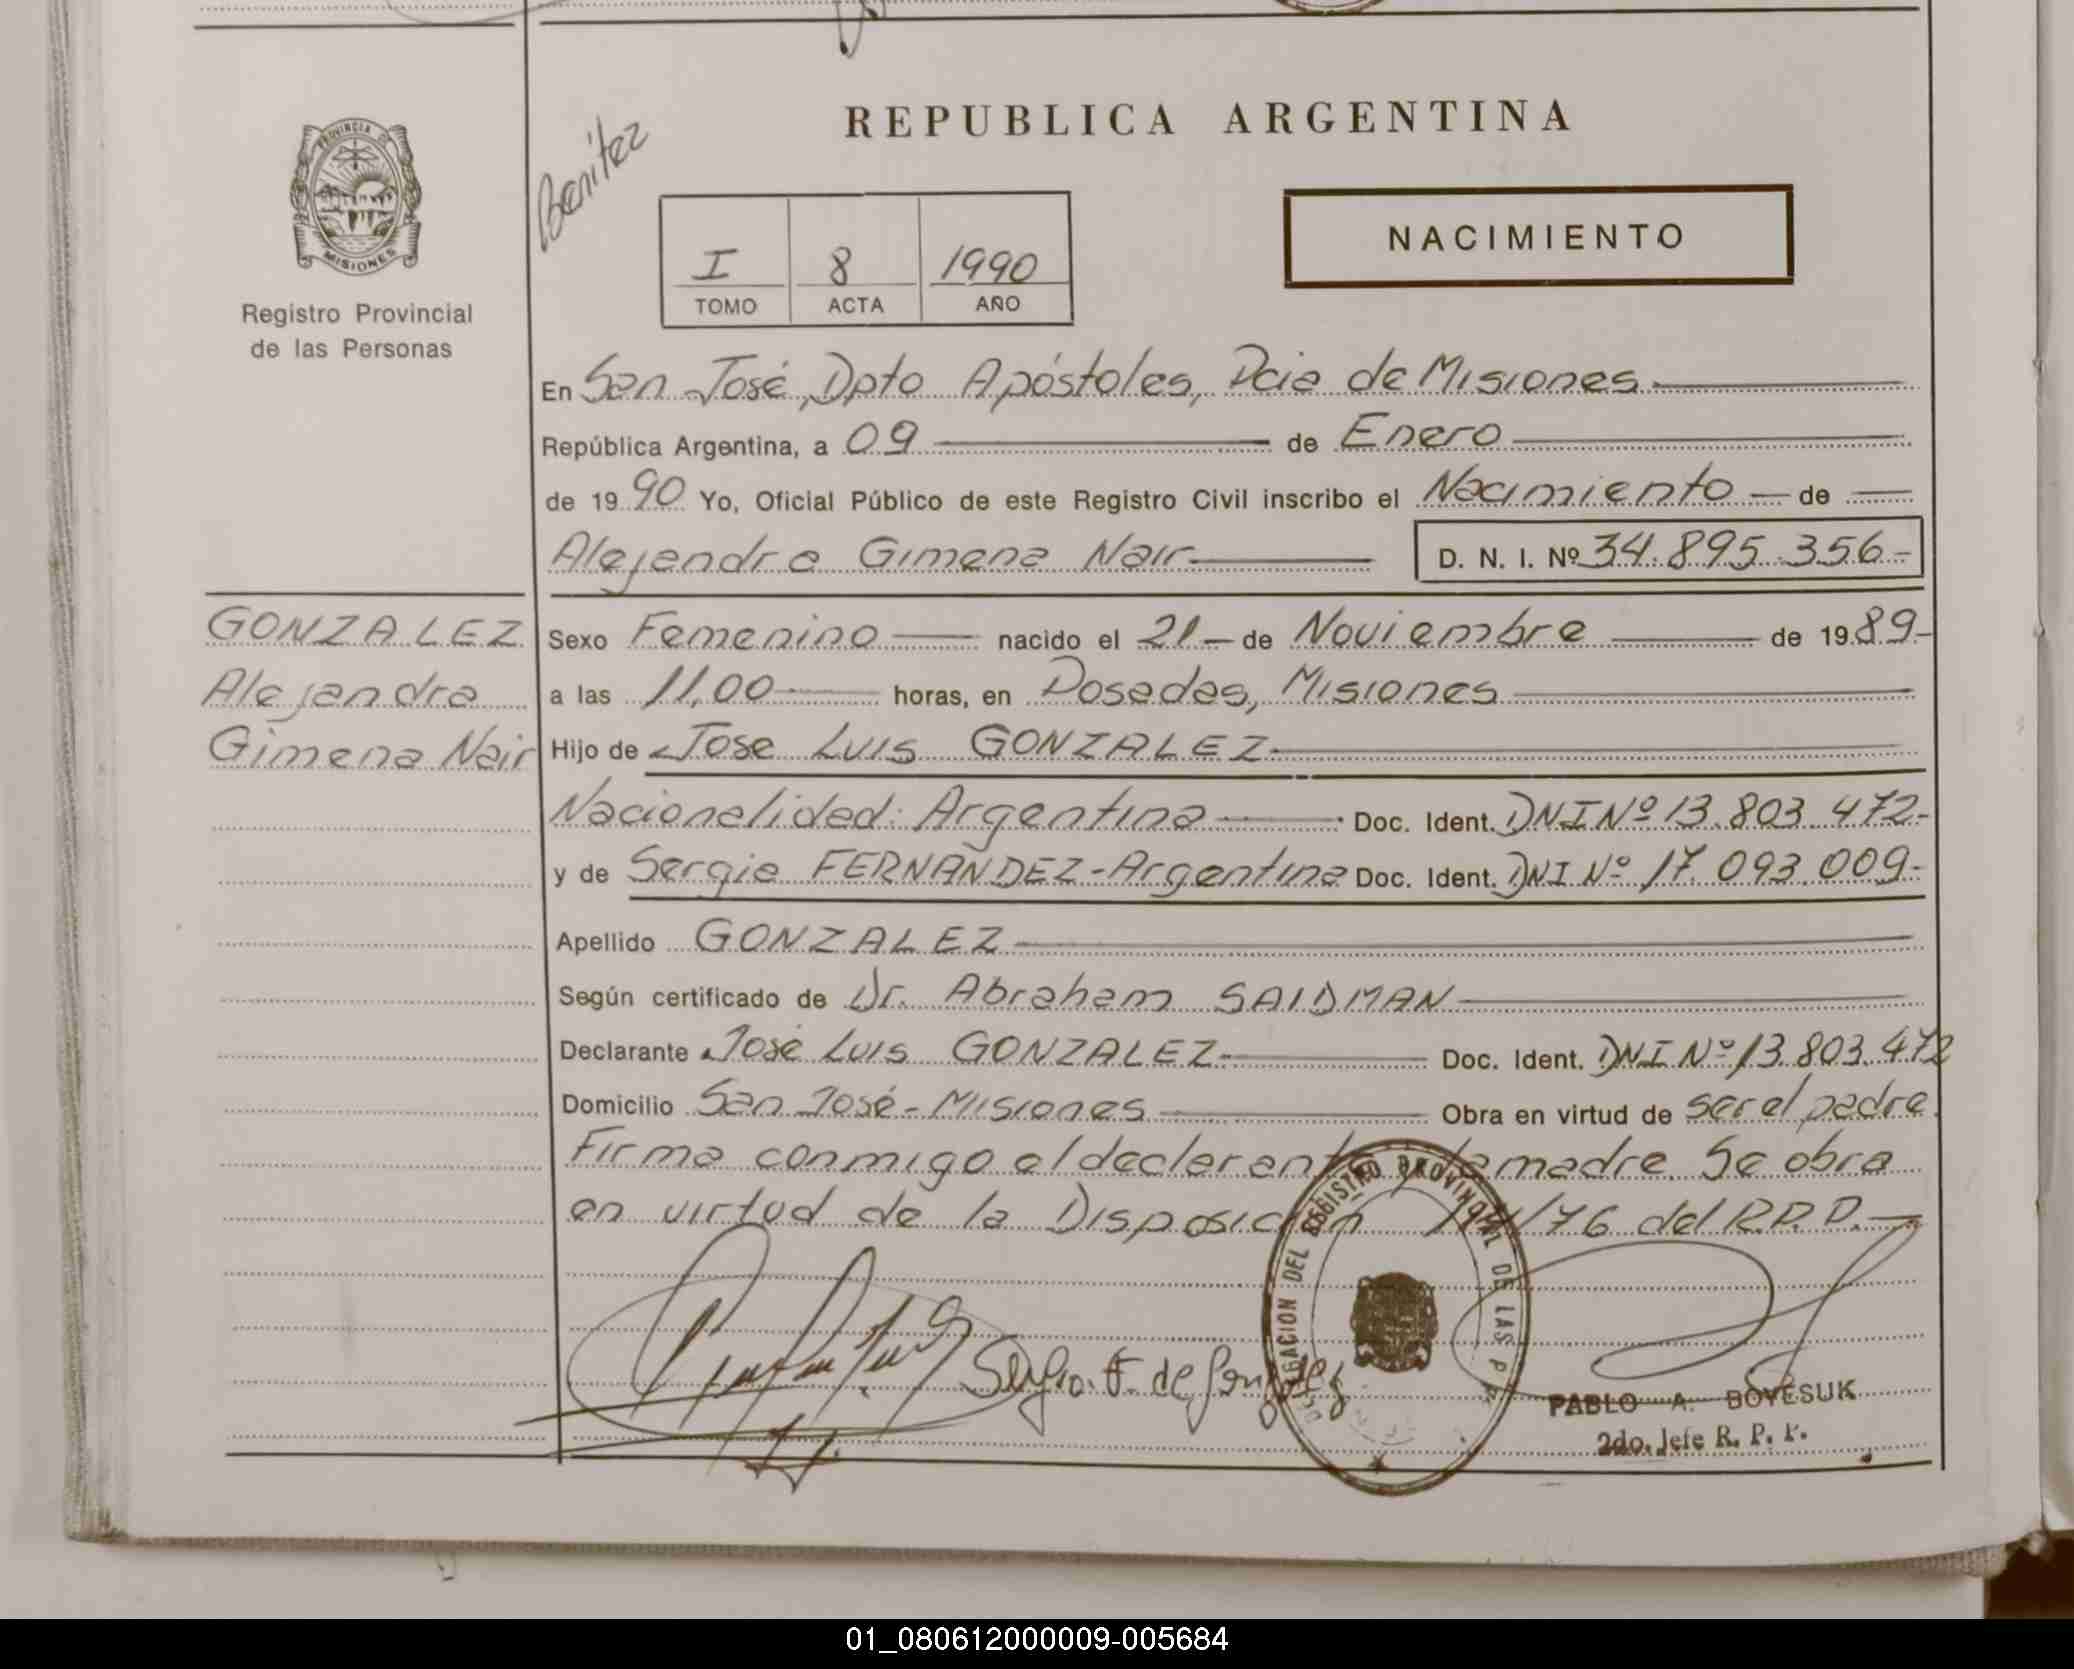 REPUBLICA ARGENTINA
PROVINCIA DE
MISIONES
Registro Provincial
de las Personas
Benitez
I 8 1990
TOMO ACTA AÑO
NACIMIENTO
En San José, Dpto Apóstoles, Pcia de Misiones
República Argentina, a 09 de Enero
de 1990 Yo, Oficial Público de este Registro Civil inscribo el Nacimiento de
Alejandra Gimena Nair D. N. I. Nº 34.895.356.-
GONZALEZ
Alejandra
Gimena Nair
Sexo Femenino nacido el 21 de Noviembre de 1989-
a las 11,00 horas, en Posadas, Misiones
Hijo de Jose Luis GONZALEZ
Nacionalidad: Argentina Doc. Ident. DNI Nº 13.803.472-
y de Sergia FERNANDEZ-Argentina Doc. Ident. DNI Nº 17.093.009-
Apellido GONZALEZ
Según certificado de Dr. Abraham SAIDMAN
Declarante José Luis GONZALEZ Doc. Ident. DNI Nº 13.803.472
Domicilio San José-Misiones Obra en virtud de ser el padre.
Firma conmigo el declarante la madre. Se obra
en virtud de la Disposición /76 del R.P.P.
Sergia F. de Gonzalez
DELEGACION DEL REGISTRO PROVINCIAL DE LAS P
PABLO A. BOYESUK
2do. Jefe R. P. P.
01_080612000009-005684